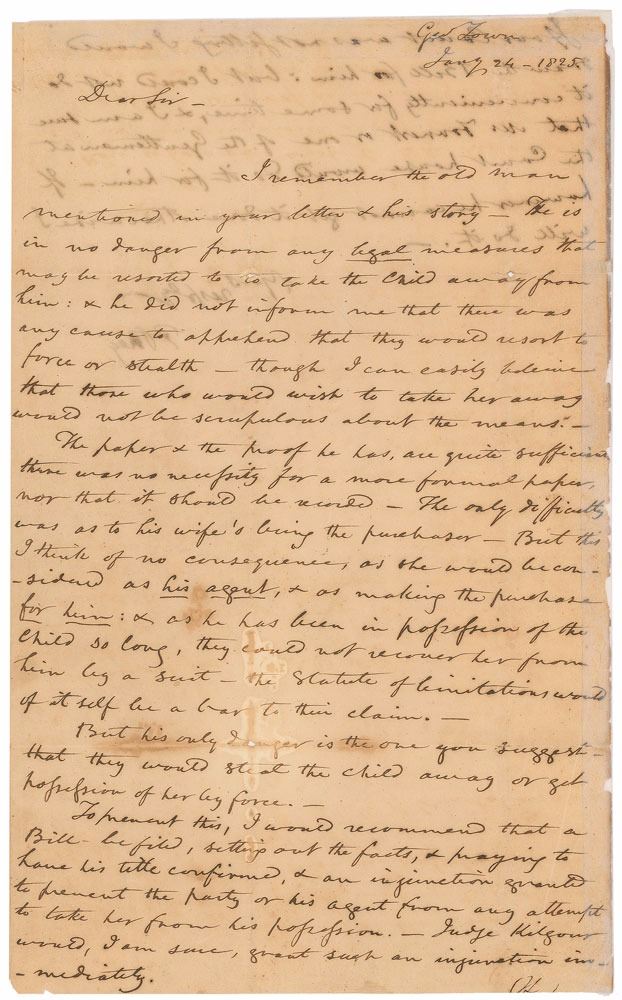 Geo. Town
Jany 24 - 1825.
Dear Sir -
I remember the old man
mentioned in your letter & his story - He is
in no danger from any legal measures that
may be resorted to to take the child away from
him: & he did not inform me that there was
any cause to apprehend that they would resort to
force or stealth - though I can easily beleive
that those who would wish to take her away
would not be scrupulous about the means. -
The paper & the proof he has, are quite sufficient
there was no necessity for a more formal paper,
nor that it should be recorded - The only difficulty
was as to his wife's being the purchaser - But this
I think of no consequence, as she would be con-
-sidered as his agent, & as making the purchase
for him: & as he has been in possession of the
child so long, they could not recover her from
him by a suit - the Statute of limitations would
of itself be a bar to their claim. -
But his only danger is the one you suggest -
that they would steal the child away or get
possession of her by force. -
To prevent this, I would recommend that a
Bill be filed, setting out the facts, & praying to
have his title confirmed, & an injunction granted
to prevent the party or his agent from any attempt
to take her from his possession. - Judge Kilgour
would, I am sure, grant such an injunction im-
-mediately.